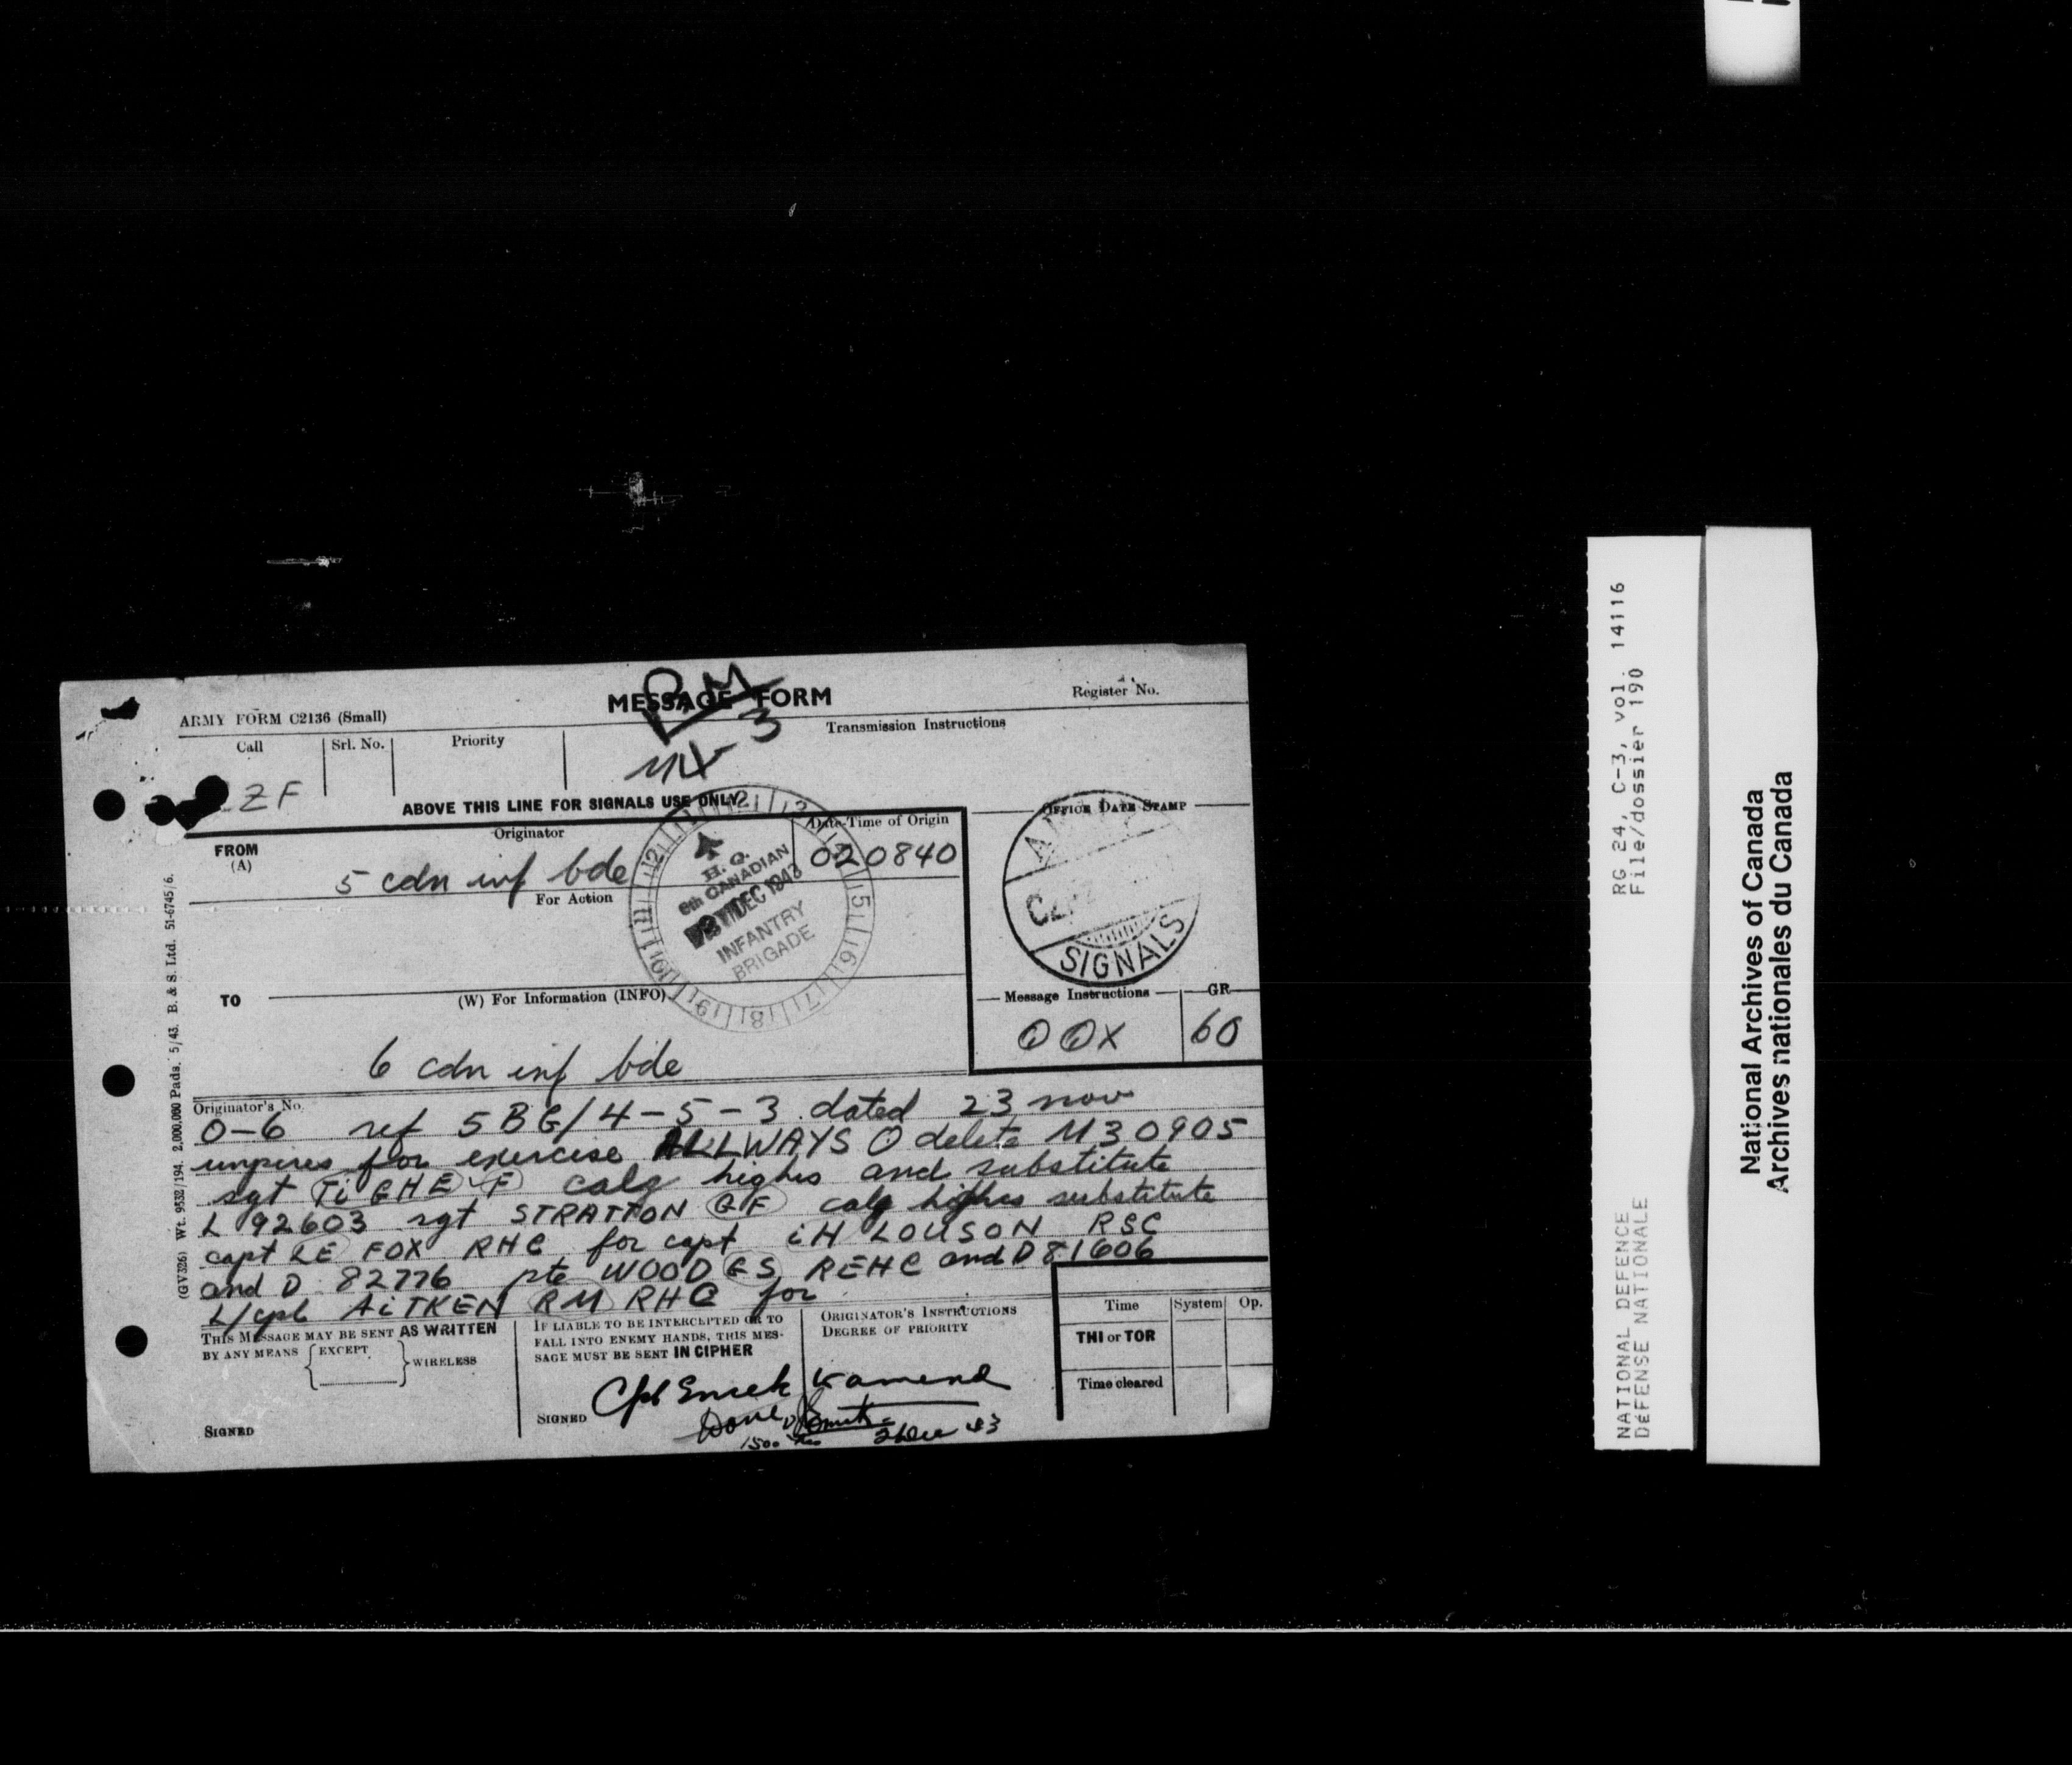 MESSAGE FORM
Register No.
ARMY FORM C2136 (Small)
Call
Srl. No.
Priority
Transmission Instructions
3
ZF
ABOVE THIS LINE FOR SIGNALS USE ONLY
OFFICE DATE STAMP
FROM
(A)
Originator
Date-Time of Origin
5 cdn inf bde
020840
For Action
H. Q.
6th CANADIAN
DEC 1943
INFANTRY
BRIGADE
SIGNALS
TO
(W) For Information (INFO)
Message Instructions
GR
OOX
60
6 cdn inf bde
Originator's No.
O-6 ref 5BG/4-5-3 dated 23 nov
umpires for exercise ALLWAYS O delete M30905
sgt TiGHE F calg highrs and substitute
L 92603 sgt STRATTON GF calg highrs substitute
capt LE FOX RHC for capt iH LOUSON RSC
and D 82776 pte WOOD GS REHC and D81606
L/cpl AiTKEN RM RHC for
THIS MESSAGE MAY BE SENT AS WRITTEN
BY ANY MEANS EXCEPT WIRELESS
SIGNED
IF LIABLE TO BE INTERCEPTED OR TO
FALL INTO ENEMY HANDS, THIS MES-
SAGE MUST BE SENT IN CIPHER
SIGNED
ORIGINATOR'S INSTRUCTIONS
DEGREE OF PRIORITY
Time
System
Op.
THI or TOR
Time cleared
1500
2 Dec 43
(GV326) Wt. 9532/194. 2,000,000 Pads. 5/43. B. & S. Ltd. 51-6745/6.
RG 24, C-3, vol. 14116
File/dossier 190
NATIONAL DEFENCE
DÉFENSE NATIONALE
National Archives of Canada
Archives nationales du Canada